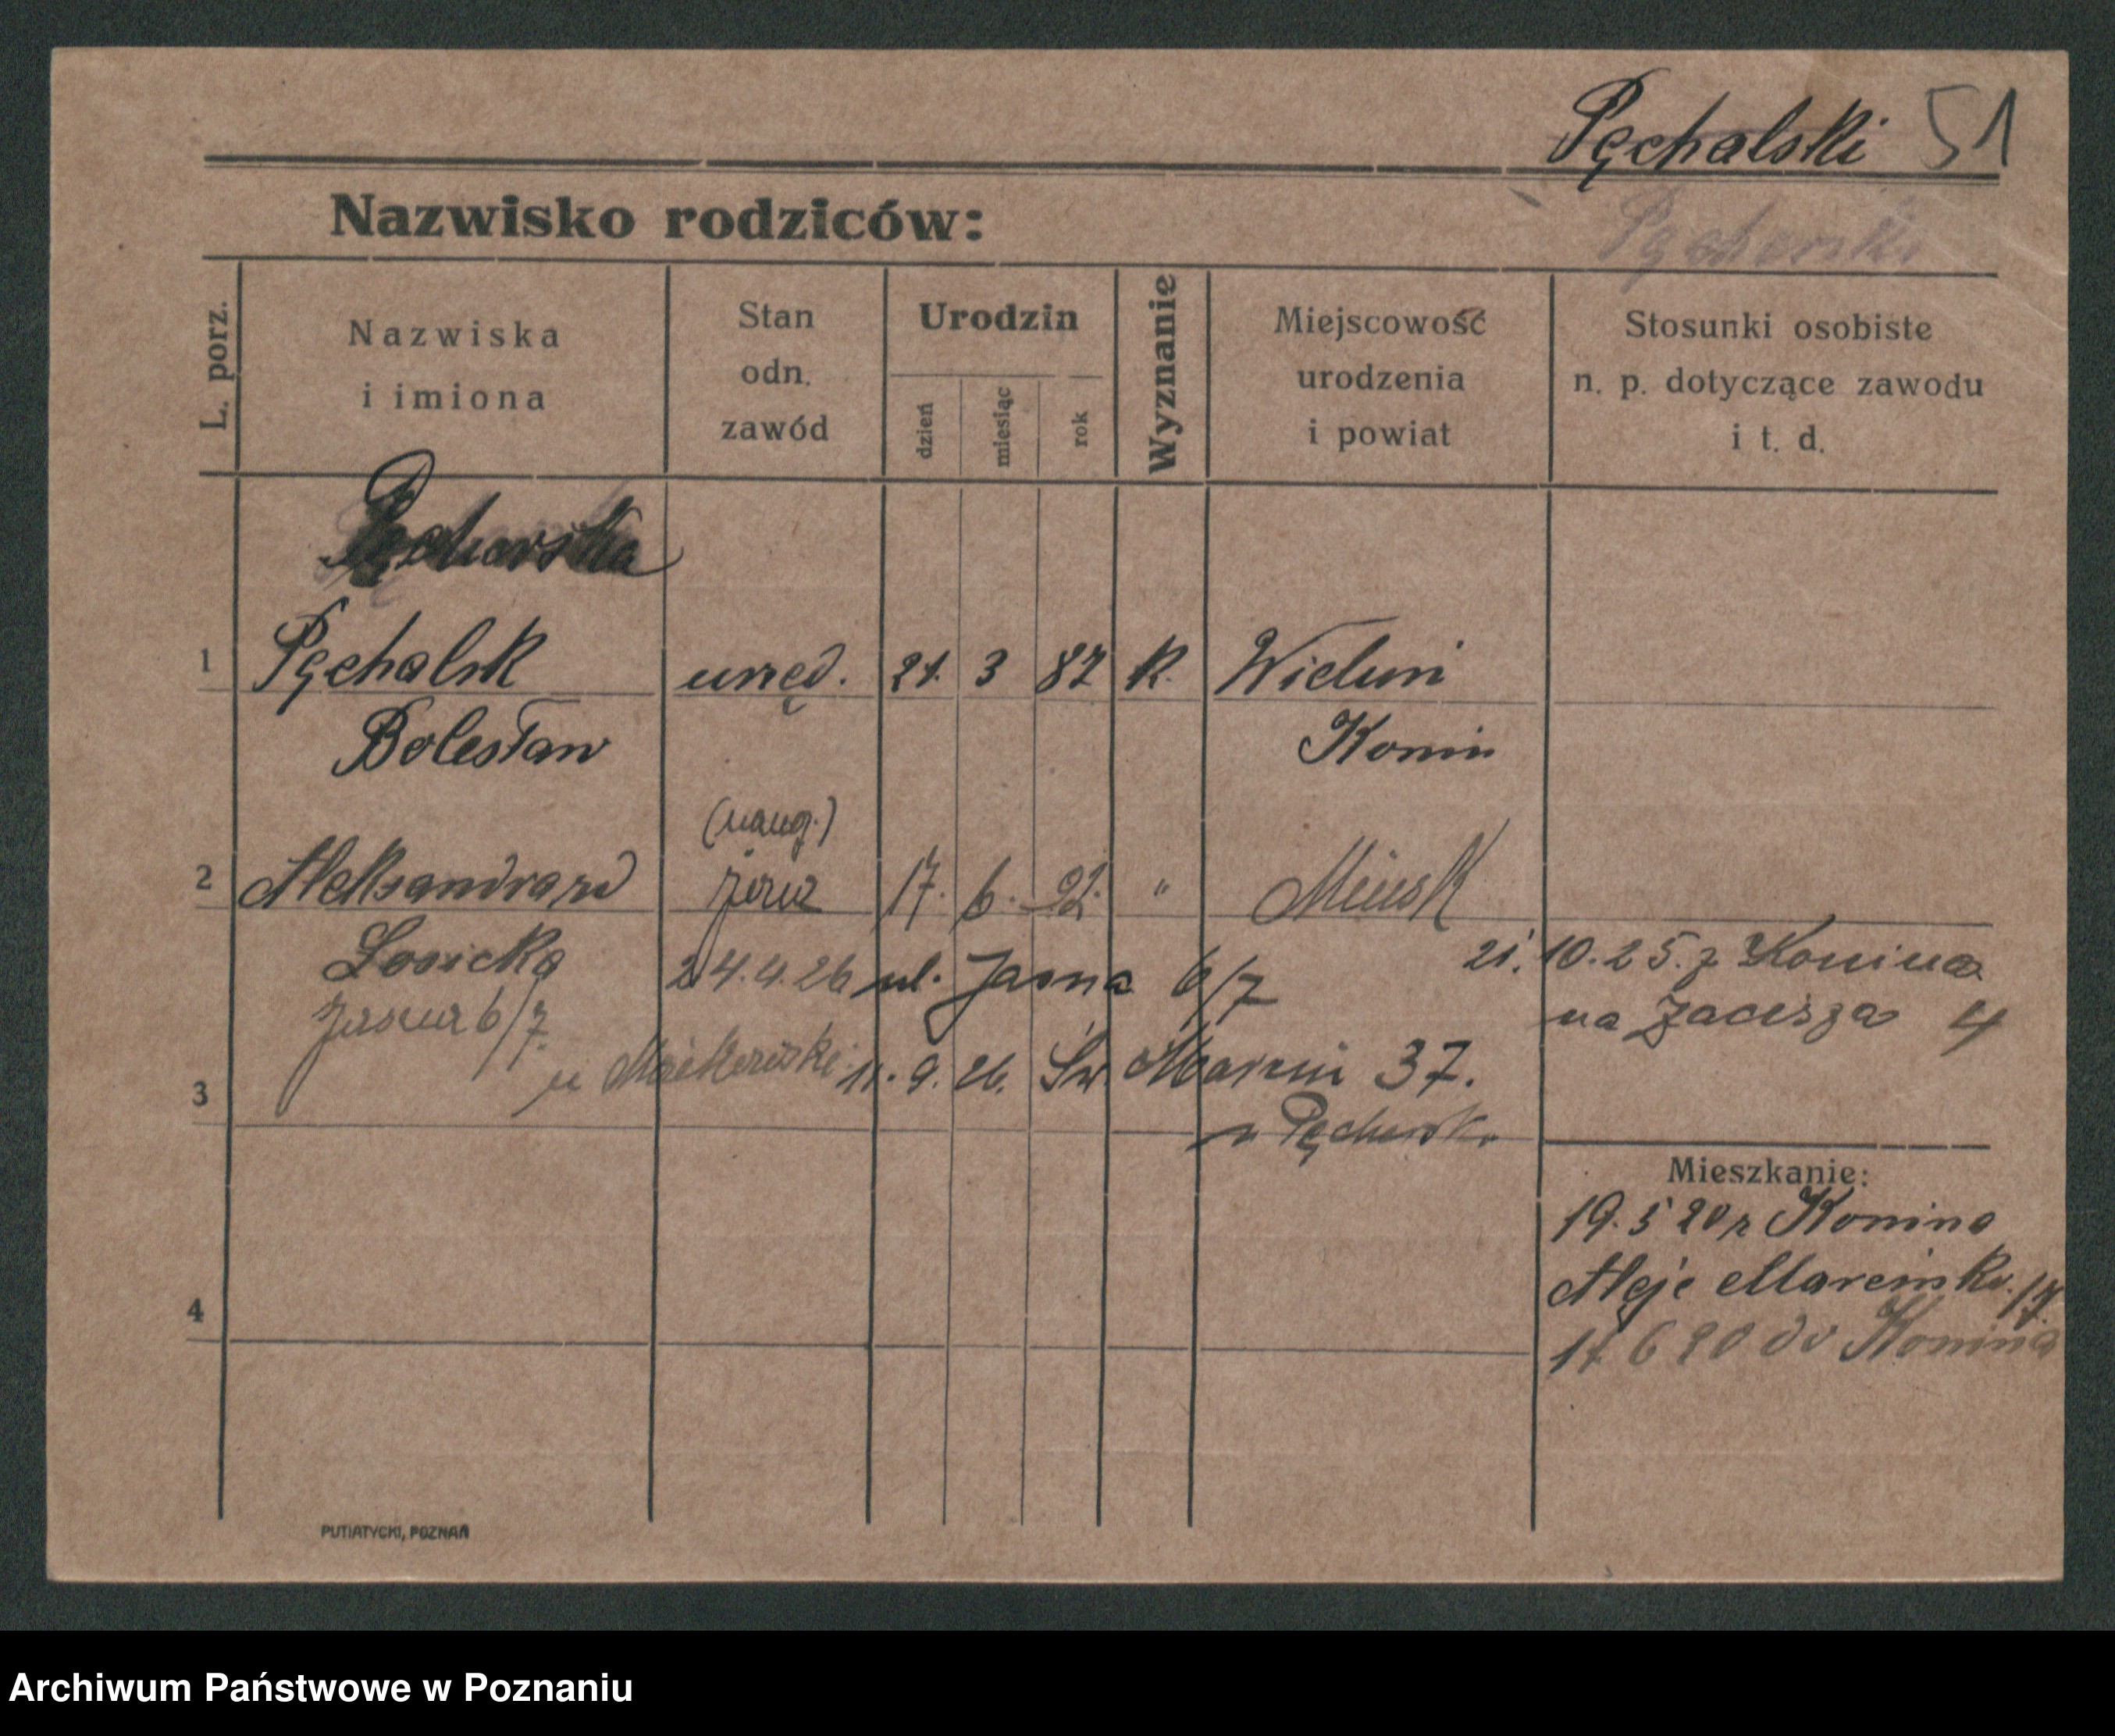 Pęchalski 51
Nazwisko rodziców:
L. porz.
Nazwiska
i imiona
Stan
odn.
zawód
Urodzin
dzień
miesiąc
rok
Wyznanie
Miejscowość
urodzenia
i powiat
Stosunki osobiste
n. p. dotyczące zawodu
i t. d.
Pęcherska
1 Pęchalsk urzęd. 21. 3 87 K. Wieluń
Bolesław Konin
2 Aleksandra żona 17. 6. 92. " Mińsk
Łosicka 24.4.26 ul. Jasna 6/7
21. 10.25. z Konina
Jasna 6/7
na Zacisza 4
3 11. 9. 26. Św. Marcin 37.
Mieszkanie:
19. 5 20 z Konina
Aleje Marcink. 17
4 17 6 20 do Konina
PUTIATYCKI, POZNAŃ
Archiwum Państwowe w Poznaniu